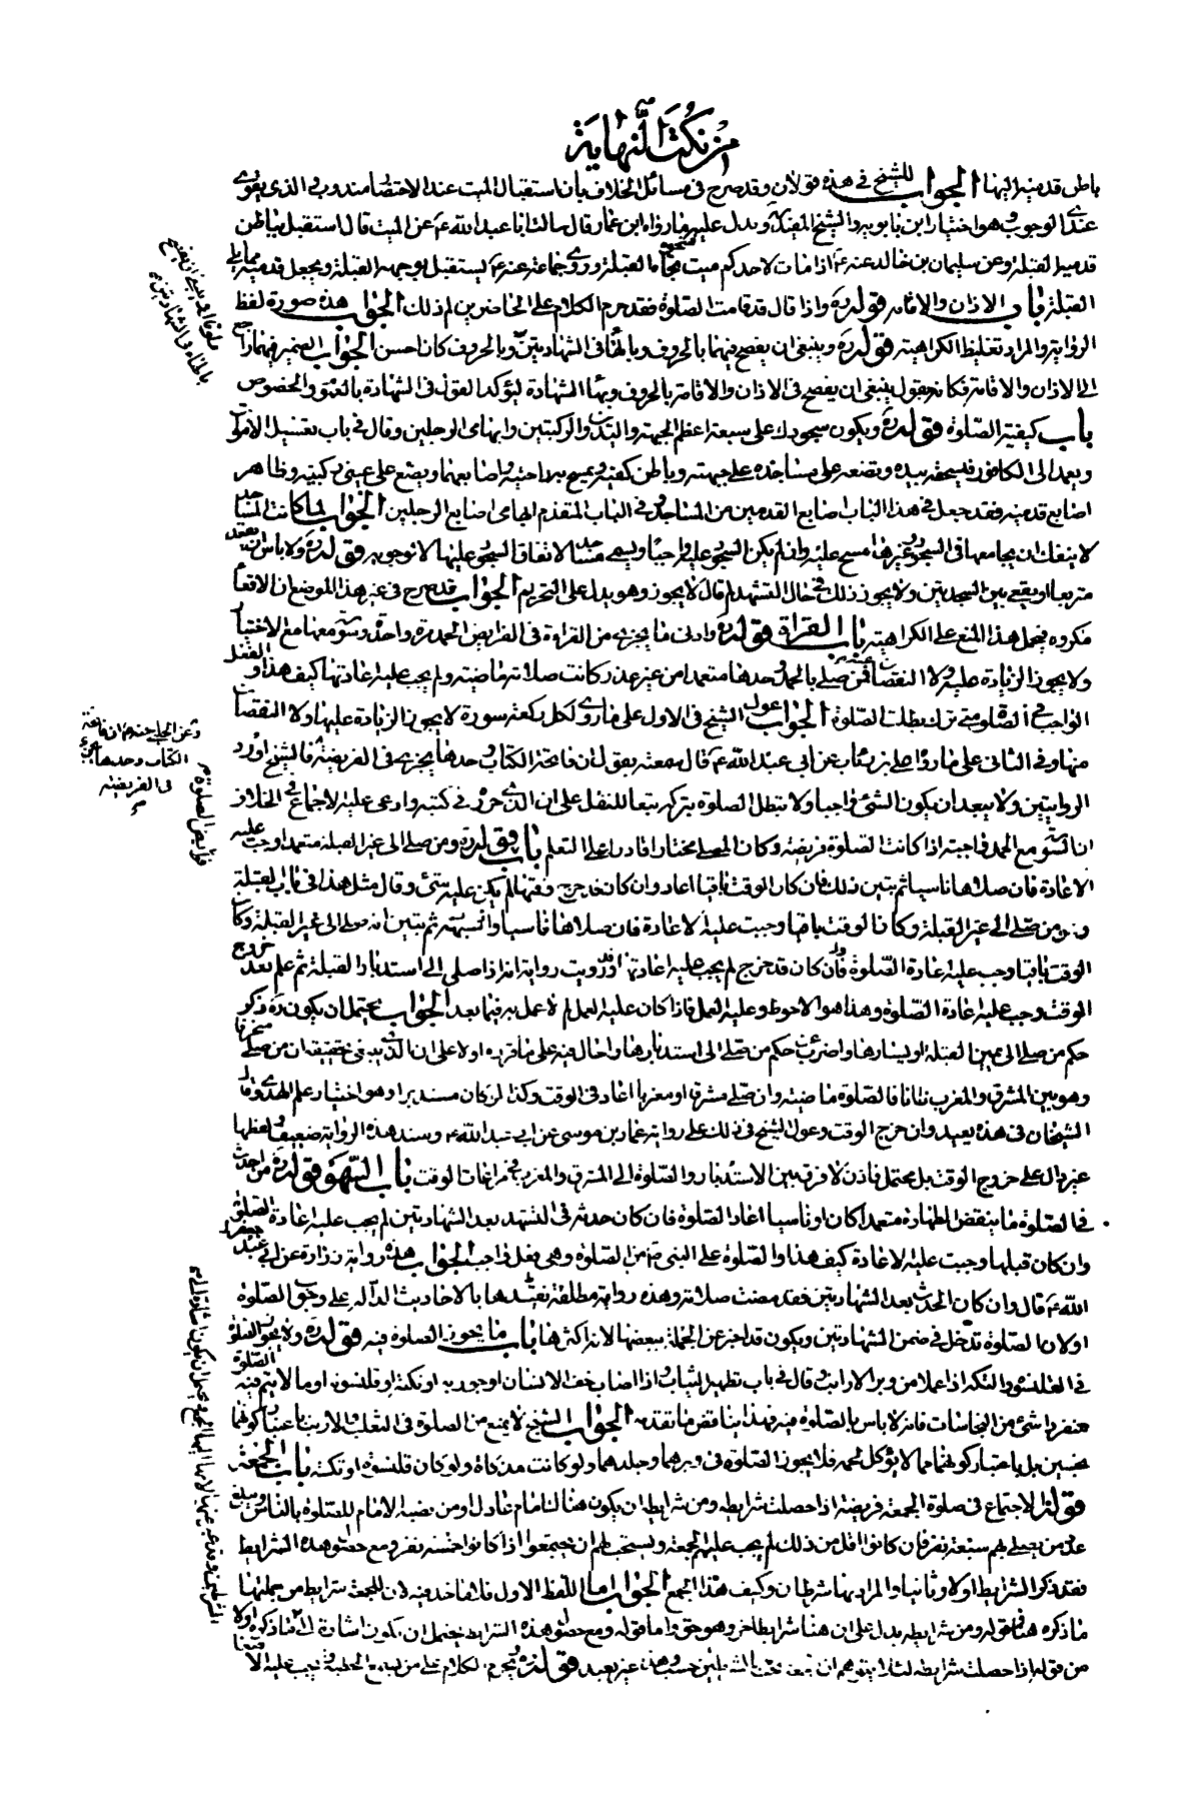 من نكت النهاية
باطن قدميه اليها الجواب للشيخ في هذه قولان وقد صرح في مسائل الخلاف بان استقبال الميت عند الاحتضار مندوب والذي يقوى
عندي الوجوب وهو اختيار ابن بابويه والشيخ المفيد ويدل عليه ما رواه ابن عمار قال سالت ابا عبد الله ع عن الميت قال استقبل بباطن
قدميه القبلة وعن سليمان بن خالد عنه ع اذا مات لاحدكم ميت فسجوه تجاه القبلة وروى جماعة عنه ع يستقبل بوجهه القبلة ويجعل قدميه مما يلي
القبلة باب الاذان والاقامة قوله ره واذا قال قد قامت الصلوة فقد حرم الكلام على الحاضرين لم ذلك الجواب هذه صورة لفظ
الرواية والمراد تغليظ الكراهية قوله ره وينبغي ان يفصح فيهما بالحروف وبالهاء في الشهادتين وبالحروف كان احسن الجواب الضمير فيهما راجع
الى الاذان والاقامة فكانه يقول ينبغي ان يفصح في الاذان والاقامة بالحروف وبهاء الشهادة ليؤكد القول في الشهادة بالعموم والخصوص
باب كيفية الصلوة قوله ره ويكون سجودك على سبعة اعظم الجبهة واليدين والركبتين وابهامي الرجلين وقال في باب تغسيل الاموات
ويعمد الى الكافور فيسحقه بيده ويضعه على مساجده على جبهته وباطن كفيه ويمسح به راحتيه واصابعهما ويضع على عيني ركبتيه وظاهر
اصابع قدميه فقد جعل في هذا الباب اصابع القدمين من المساجد وفي الباب المتقدم ابهامي اصابع الرجلين الجواب لما كانت المساجد
لا ينفك ان يجامعها في السجود غيرها مسح عليه وان لم يكن السجود عليه واجبا ويسمى مساجد لاتفاق السجود عليها لا لوجوبه قوله ره ولا باس ان يقعد
متربعا او يقعي بين السجدتين ولا يجوز ذلك في حال التشهد لم قال لا يجوز وهو يدل على التحريم الجواب قد صرح في غير هذا الموضع ان الاقعاء
مكروه فيحمل هذا المنع على الكراهية باب القراءة قوله ره وادنى ما يجزى من القراءة في الفرايض الحمد مرة واحدة وسورة معها مع الاختيار
ولا يجوز الزيادة عليه ولا النقصان عنه فمن صلى بالحمد وحدها متعمدا من غير عذر كانت صلاته ماضية ولم يجب عليه اعادتها كيف هذا والفعل
الواجب في الصلوة متى ترك بطلت الصلوة الجواب عول الشيخ في الاول على ما روى لكل ركعة سورة لا يجوز الزيادة عليها ولا النقصان
منها وفي الثاني على ما رواه علي بن رئاب عن ابي عبد الله ع قال سمعته يقول ان فاتحة الكتاب وحدها يجزى في الفريضة فالشيخ اورد
الروايتين ولا يبعد ان يكون الشئ واجبا ولا تبطل الصلوة بتركه تبعا للنقل على ان الذي حرر في كتبه وادعى عليه الاجماع في الخلاف
ان السورة مع الحمد واجبة اذا كانت الصلوة فريضة وكان المصلي مختارا قادرا على التعلم باب قوله ره ومن صلى الى غير القبلة متعمدا وجبت عليه
الاعادة فان صلاها ناسيا ثم تبين ذلك فان كان الوقت باقيا اعاد وان كان قد خرج وقتها لم يكن عليه شئ وقال مثل هذا في باب القبلة
وهو من صلى الى غير القبلة وكان الوقت باقيا وجبت عليه الاعادة فان صلاها ناسيا او لشبهة ثم تبين انه صلى الى غير القبلة وكان
الوقت باقيا وجب عليه اعادة الصلوة وان كان قد خرج لم يجب عليه اعادتها وقد رويت رواية انه اذا صلى الى استدبار القبلة ثم علم بعد خروج
الوقت وجب عليه اعادة الصلوة وهذا هو الاحوط وعليه العمل فاذا كان عليه العمل لم لا عمل به فيما بعد الجواب يحتمل ان يكون ره ذكر
حكم من صلى الى يمين القبلة او يسارها واضرب عن حكم من صلى الى استدبارها واحال فيه على ما قرره اولا على ان الذي بيد في تحقيقه ان من صلى منحرفا
وهو بين المشرق والمغرب بانا فالصلوة ماضية وان صلى مشرقا او مغربا اعاد في الوقت وكذا لو كان مستدبرا وهو اختيار علم الهدى وقال
الشيخان في هذه يعيد وان خرج الوقت وعول الشيخ في ذلك على رواية عمار بن موسى عن ابي عبد الله ع وسند هذه الرواية ضعيف ولفظها
غير دال على خروج الوقت بل محتمل فاذن لا فرق بين الاستدبار والصلوة الى المشرق والمغرب في مراعات الوقت باب السهو قوله ره من احدث
في الصلوة ما ينقض الطهارة متعمدا كان او ناسيا اعاد الصلوة فان كان حدثه في التشهد بعد الشهادتين لم يجب عليه اعادة الصلوة
وان كان قبلها وجبت عليه الاعادة كيف هذا والصلوة على النبي ص من الصلوة وهي فعل واجب الجواب هذه رواية زرارة عن ابي عبد
الله ع قال وان كان الحدث بعد الشهادتين فقد مضت صلاته وهذه رواية مطلقة نقيدها بالاحاديث الدالة على وجوب الصلوة
اولا لان الصلوة تدخل في ضمن الشهادتين ويكون قد اخبر عن الجملة ببعضها لانه اكثرها باب ما يجوز الصلوة فيه قوله ره ولا يجوز الصلوة
في القلنسوة والتكة اذا عملا من وبر الارانب وقال في باب تطهير الثياب واذا اصاب خف الانسان او جوربه او تكته او قلنسوته او ما لا يتم فيه الصلوة
منفردا شئ من النجاسات فانه لا باس بالصلوة فيه فهذا يناقض ما تقدمه الجواب الشيخ لا يمنع من الصلوة في الثعلب والارنب باعتبار كونهما
نجسين بل باعتبار كونهما مما لا يؤكل لحمه فلا يجوز الصلوة في وبرهما وجلدهما ولو كانت مذكاة ولو كان قلنسوة او تكة باب الجمعة
قوله الاجتماع في صلوة الجمعة فريضة اذا حصلت شرايطه ومن شرايطه ان يكون هناك امام عادل او من نصبه الامام للصلوة بالناس ويبلغ
عدد من يصلي بهم سبعة نفر فان كانوا اقل من ذلك لم يجب عليهم الجمعة ويستحب لهم ان يجتمعوا اذا كانوا خمسة نفر ومع حصول هذه الشرايط
فقد ذكر الشرايط اولا وثانيا والمراد بها شرطان وكيف هذا الجمع الجواب اما اللفظ الاول فلا مناخذ فيه لان للجمعة شرايط من جملتها
ما ذكره هنا فقوله ومن شرايطه يدل على ان هنا شرايط اخر وهو حق واما قوله ومع حصول هذه الشرايط يحتمل ان يكون اشارة الى ما ذكره اولا
من قوله اذا حصلت شرايطه لئلا يتوهم ان الجمعة تحت الشرطين حسب وهذا غير بعيد قوله ره ويحرم الكلام على من يسمع الخطبة ويجب عليه الا
وعن الحلبي عنه ع ان فاتحة
الكتاب وحدها تجزى
في الفريضة
فرايض الصلوة